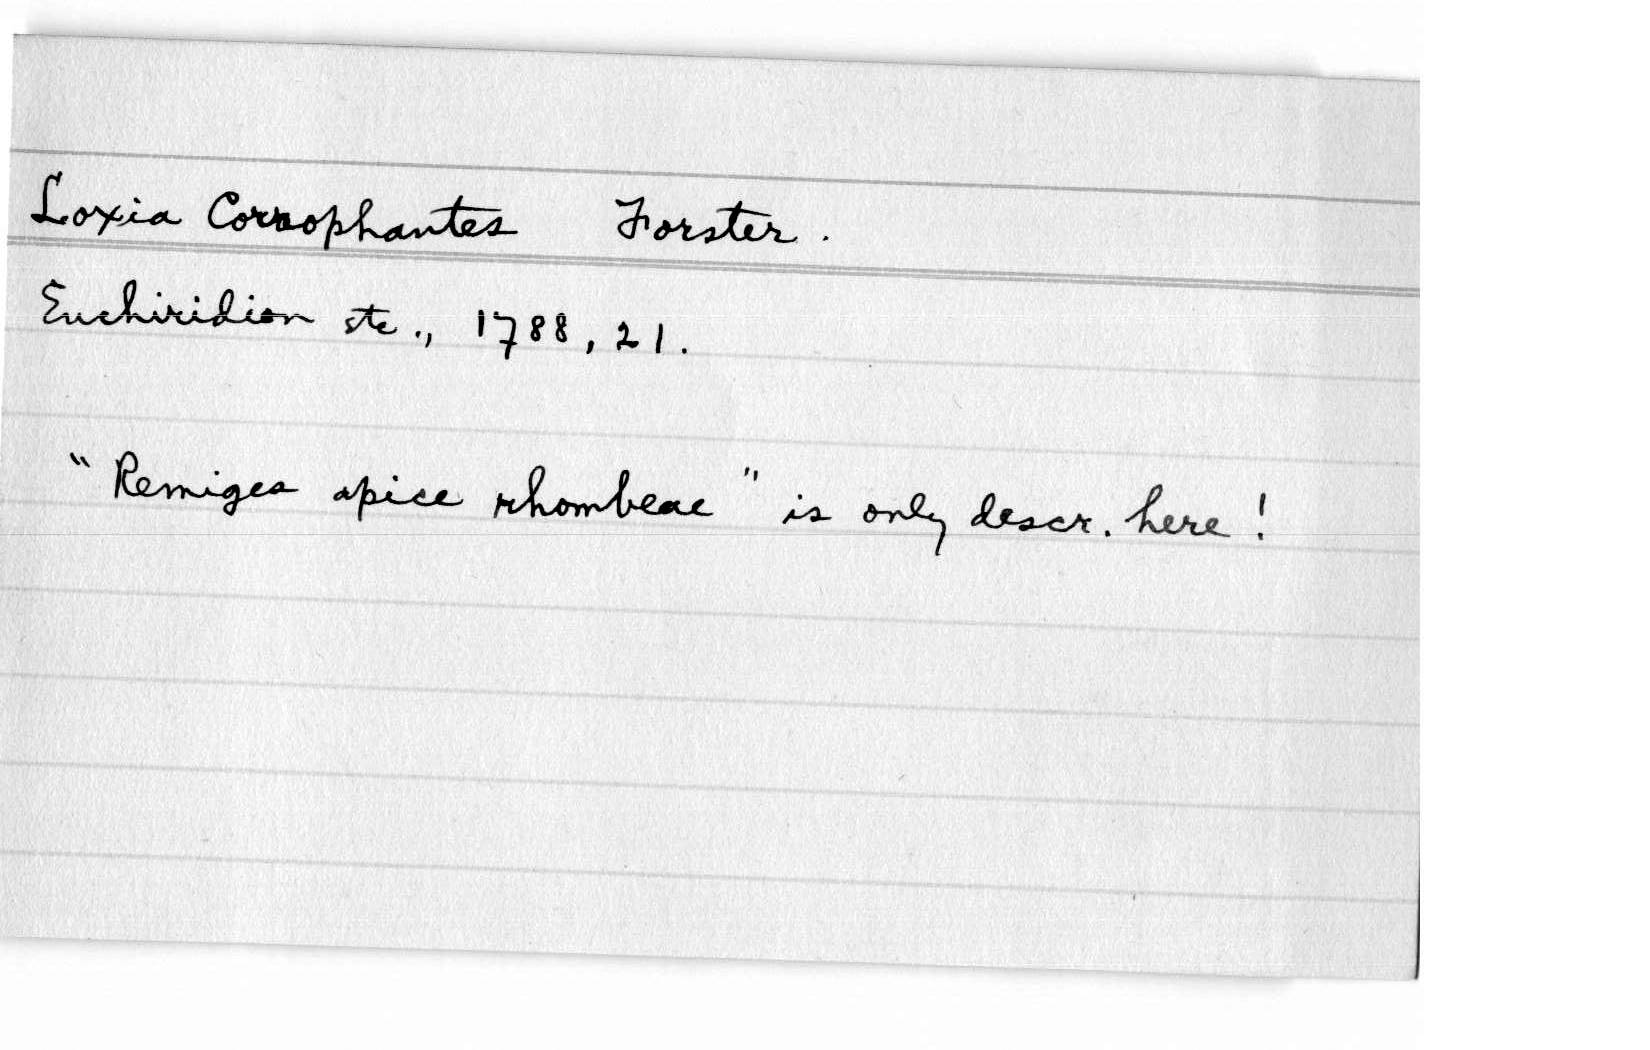 Loxia Forster.
Enchiridion etc., 1788, 21.
"Remiges apice rhombeae" is only descr. here!